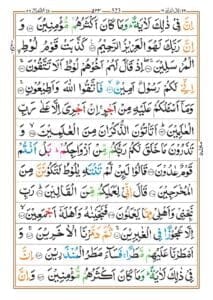 اِنَّ فِىْ ذٰلِكَ لَاٰيَةً ؕ وَمَا كَانَ اَكْثَرُهُمْ مُّؤْمِنِيْنَ وَ
اِنَّ رَبَّكَ لَهُوَ الْعَزِيْزُ الرَّحِيْمُ كَذَّبَتْ قَوْمُ لُوْطِ
اۨلْمُرْسَلِيْنَ اِذْ قَالَ لَهُمْ اَخُوْهُمْ لُوْطٌ اَلَا تَتَّقُوْنَ
اِنِّىْ لَكُمْ رَسُوْلٌ اَمِيْنٌ فَاتَّقُوا اللّٰهَ وَاَطِيْعُوْنِ
وَمَاۤ اَسْـَٔلُكُمْ عَلَيْهِ مِنْ اَجْرٍ اِنْ اَجْرِىَ اِلَّا عَلٰى رَبِّ
الْعٰلَمِيْنَ اَتَاْتُوْنَ الذُّكْرَانَ مِنَ الْعٰلَمِيْنَ
وَتَذَرُوْنَ مَا خَلَقَ لَكُمْ رَبُّكُمْ مِّنْ اَزْوَاجِكُمْ بَلْ اَنْتُمْ
قَوْمٌ عٰدُوْنَ قَالُوْا لَئِنْ لَّمْ تَنْتَهِ يٰلُوْطُ لَتَكُوْنَنَّ مِنَ
الْمُخْرَجِيْنَ قَالَ اِنِّىْ لِعَمَلِكُمْ مِّنَ الْقَالِيْنَ رَبِّ
نَجِّنِىْ وَاَهْلِىْ مِمَّا يَعْمَلُوْنَ فَنَجَّيْنٰهُ وَاَهْلَهٗۤ اَجْمَعِيْنَ
اِلَّا عَجُوْزًا فِى الْغٰبِرِيْنَ ثُمَّ دَمَّرْنَا الْاٰخَرِيْنَ وَ
اَمْطَرْنَا عَلَيْهِمْ مَّطَرًا فَسَآءَ مَطَرُ الْمُنْذَرِيْنَ اِنَّ
فِىْ ذٰلِكَ لَاٰيَةً ؕ وَمَا كَانَ اَكْثَرُهُمْ مُّؤْمِنِيْنَ وَ اِنَّ